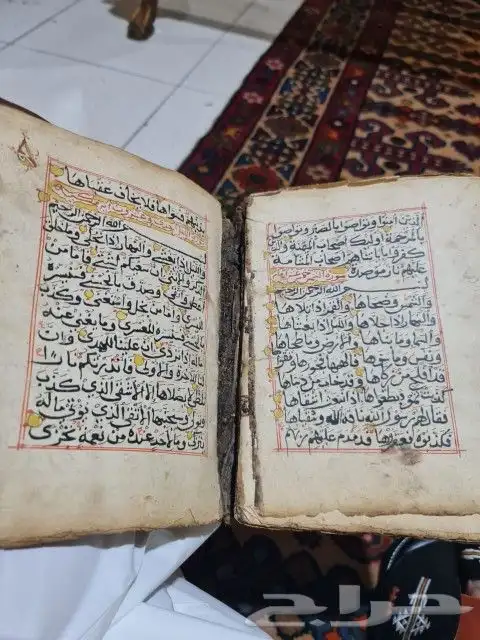 الذين امنوا وتواصوا بالصبر وتواصوا
بالمرحمة اولئك اصحاب الميمنة والذين
كفروا باياتنا هم اصحاب المشامة
عليهم نار موصدة سورة الشمس
بسم الله الرحمن الرحيم
والشمس وضحاها والقمر اذا تلاها
والنهار اذا جلاها والليل اذا يغشاها
والسماء وما بناها والارض وما طحاها
ونفس وما سواها فالهمها فجورها وتقواها
قد افلح من زكاها وقد خاب من دساها
كذبت ثمود بطغواها اذ انبعث اشقاها
فقال لهم رسول الله ناقة الله وسقياها
فكذبوه فعقروها فدمدم عليهم ربهم
بذنبهم فسواها فلا يخاف عقباها
بسم الله الرحمن الرحيم
والليل اذا يغشى والنهار اذا تجلى وما خلق
الذكر والانثى ان سعيكم لشتى فاما من
اعطى واتقى وصدق بالحسنى فسنيسره
لليسرى واما من بخل واستغنى وكذب
بالحسنى فسنيسره للعسرى وما يغني عنه
ماله اذا تردى ان علينا للهدى وان
لنا للاخرة والاولى فانذرتكم نارا
تلظى لا يصلاها الا الاشقى الذي كذب
وتولى وسيجنبها الاتقى الذي يؤتي ماله
يتزكى وما لاحد عنده من نعمة تجزى
حراج